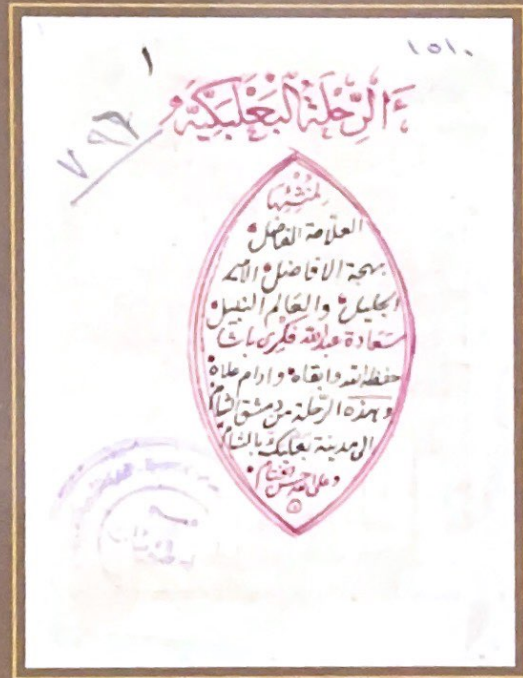 ١٥١٠
١
٧٩٦
الرّحلة البعلبكية
لمنشيها
العلامة الفاضل
بهجة الافاضل الامير
الجليل والعالم النبيل
سعادة عبدالله فكري باشا
حفظه الله وابقاه وادام علاه
وهذه الرحلة من دمشق الشام
الى مدينة بعلبك بالشام
وعلى الله حسن الختام